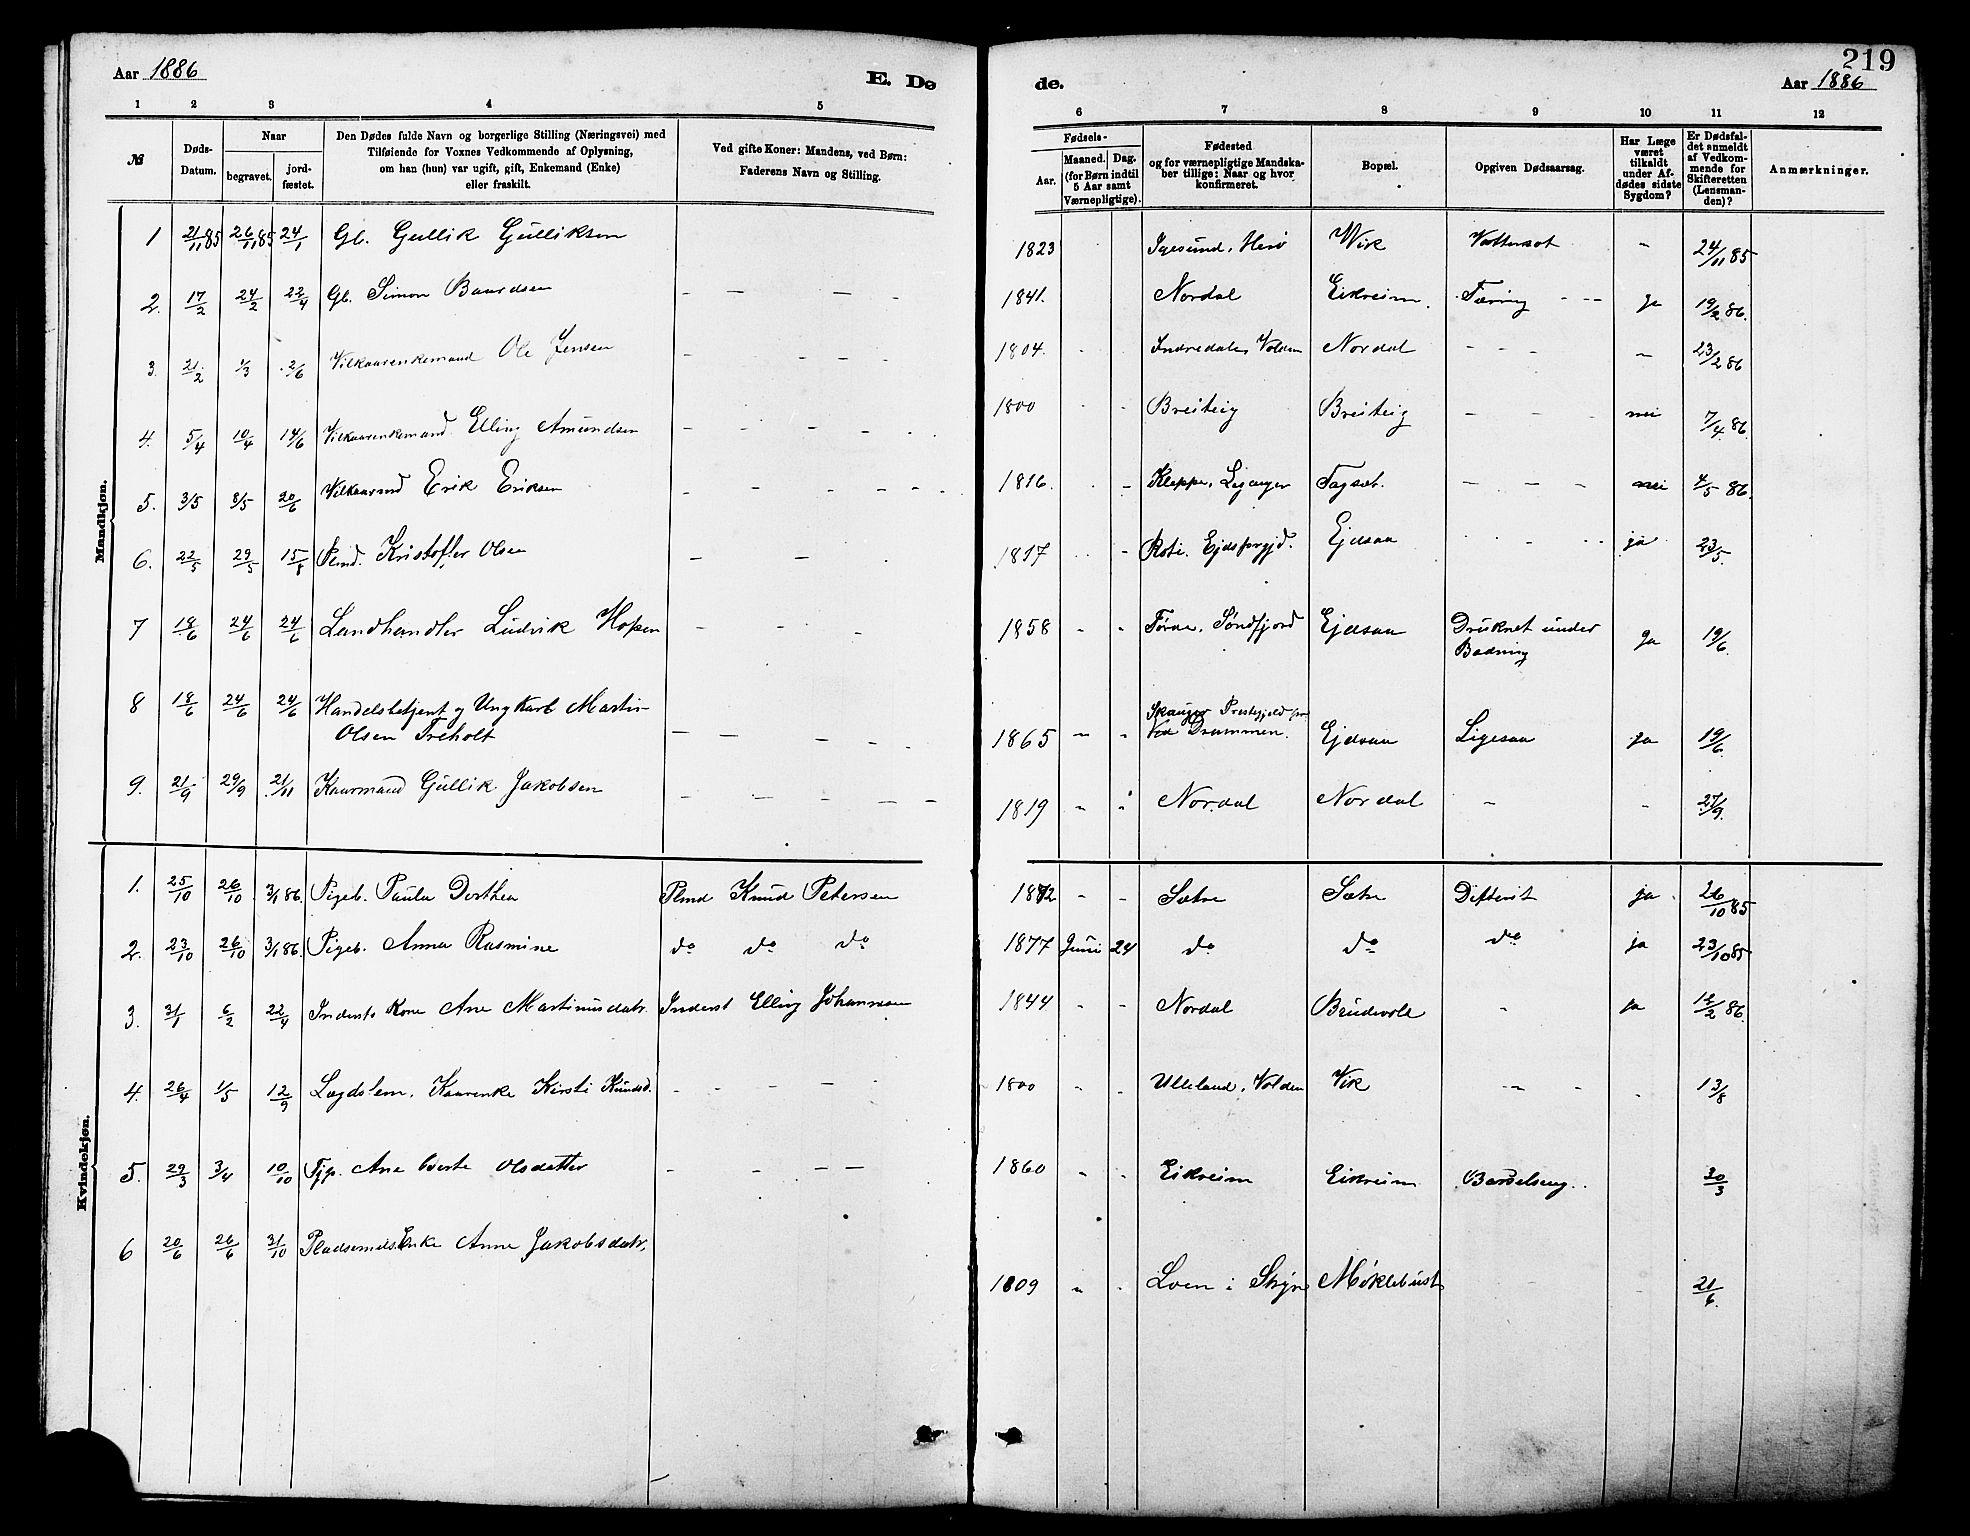 219
Aar 1886 E. Dø de. Aar 1886
1 2 3 4 5 6 7 8 9 10 11 12
№
Døds-Datum.
Naar
begravet.
jord-fæstet.
Den Dødes fulde Navn og borgerlige Stilling (Næringsvei) med
Tilføiende for Voxnes Vedkommende af Oplysning,
om han (hun) var ugift, gift, Enkemand (Enke)
eller fraskilt.
Ved gifte Koner: Mandens, ved Børn:
Faderens Navn og Stilling.
Fødsels-
Aar.
Maaned. Dag.
(for Børn indtil
5 Aar samt
Værnepligtige).
Fødested
og for værnepligtige Mandska-
ber tillige: Naar og hvor
konfirmeret.
Bopæl.
Opgiven Dødsaarsag.
Har Læge
været
tilkaldt
under Af-
dødes sidste
Sygdom?
Er Dødsfal-
det anmeldt
af Vedkom-
mende for
Skifteretten
(Lensman-
den)?
Anmærkninger.
Mandkjøn.
1 21/11 85 26/11 85 24/1 Gb. Gullik Gulliksen 1823 Igesund, Herø Wik Vattersot - 24/11 85
2. 17/2 24/2 22/4 Gb. Simon Baardsen - - - - 1841. Nordal Eikreim. Tæring - -- ja 19/2 86.
3. 21/2 1/3 2/6 Vilkaarenkemand Ole Jensen - - - 1804. Indredale, Volden Nordal - - - - 23/2 86
4. 5/4 10/4 14/6 Vilkaarenkemand Elling Amundsen - - - - 1800 Breiteig Breiteig - - - nei 7/4 86.
5. 3/5 8/5 20/6 Vilkaarmd Erik Eriksen - - - - - 1816. Kleppe, Ejdsfjord
6. 22/5 29/5 15/8 Plmd. Kristoffer Olsen - - 1817 Ejdsaa ja 23/5.
7 18/6 24/6 24/6 Landhandler Ludvik Hopen - - - 1858 - - Førde, Søndfjord Ejdsaa Druknet under ja 19/6.
Badning
8 18/6 24/6 24/6 Handelsbetjent og Ungkarl Martin
Olsen Treholt - - - - 1865 - - Skauger Prestegjeld
Ved Drammen. Ejdsaa Ligesaa ja 19/6
9. 21/9 29/9 21/11 Kaarmand Gullik Jakobsen - - - - - 1819 - - Nordal Nordal - - 27/9.
Kvindekjøn.
1. 25/10 26/10 3/1 86. Pigeb. Paula Dorthea Plmd Knud Petersen 1882 - - Sætre Sætre Difterit ja. 26/10 85
2. 23/10 26/10 3/1 86. Pigeb. Anna Rasmine do do do 1877 Juni 24 do do do ja 23/10 85
3. 31/1 6/2 22/4 Inderst Kone Ane Martinusdatr. Inderst Elling Johannsen 1844 - - Nordal Brudevole - ja 12/2 86.
4. 26/4 1/5 12/9 Lægdslem. Kaarenke Kirsti Knudsd. - - - - 1800 - - Ulleland, Volden Vik - - - 13/8
5. 29/3 3/4 10/10 Tjp. Ane Berte Olsdatter - - - - 1860 - - Eikreim Eikreim Barselseng.. 30/3
6 20/6 26/6 31/10 Pladsemds. Enke Anne Jakobsdatr. 1809 - - Loen i Stryn Møklebust - 21/6.